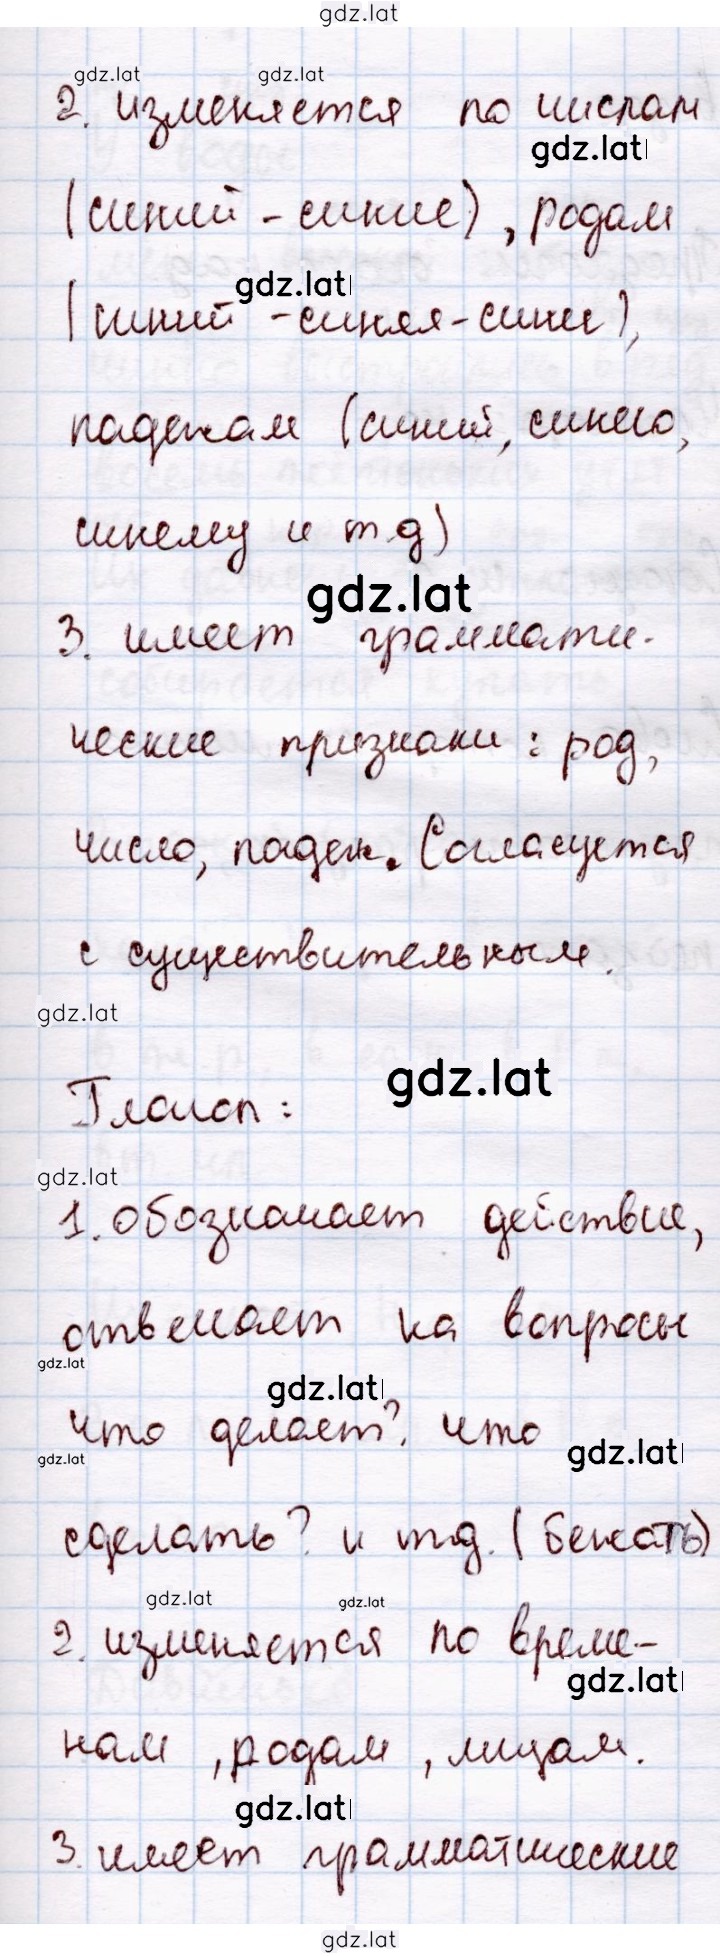 gdz.lat
gdz.lat gdz.lat
2. изменяется по числам
gdz.lat
(синий - синие), родам
gdz.lat
(синий - синяя - синее),
падежам (синий, синего,
синему и т.д)
gdz.lat
3. имеет граммати-
ческие признаки: род,
число, падеж. Согласуется
с существительным.
gdz.lat
gdz.lat
Глагол:
gdz.lat
1. обозначает действие,
отвечает на вопросы
gdz.lat
gdz.lat
что делает? что
gdz.lat
gdz.lat
сделать? и т.д. (бежать)
gdz.lat gdz.lat
2. изменяется по време-
gdz.lat
нам, родам, лицам.
gdz.lat
3. имеет грамматические
gdz.lat